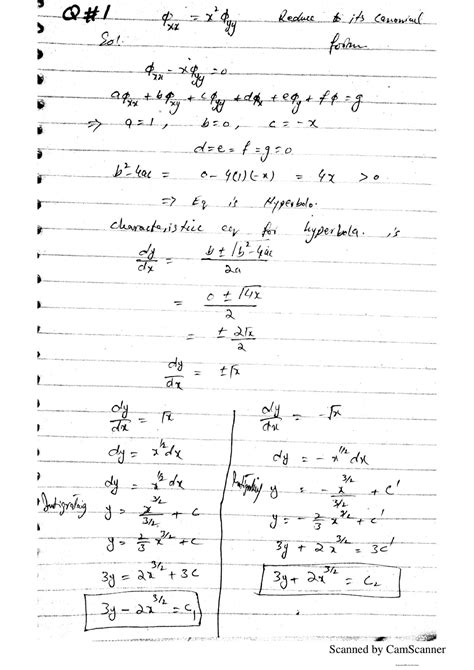 Q#1 ϕxx = x²ϕyy Reduce to its canonical form
Sol:
ϕxx - xϕyy = 0
aϕxx + bϕxy + cϕyy + dϕx + eϕy + fϕ = g
=> a=1, b=0, c=-x
d=e=f=g=0
b²-4ac = 0-4(1)(-x) = 4x >0
=> Eq is Hyperbola.
characteristic eq for hyperbola is
dy/dx = (b ± √(b²-4ac))/2a
= (0 ± √4x)/2
= ± 2√x/2
dy/dx = ±√x
dy/dx = √x
dy = x^1/2 dx
dy = x^1/2 dx
Intigrating y = x^3/2/(3/2) + c
y = 2/3 x^3/2 + c
3y = 2x^3/2 + 3c
3y - 2x^3/2 = c₁
dy/dx = -√x
dy = - x^1/2 dx
y = - x^3/2/(3/2) + c'
y = - 2/3 x^3/2 + c'
3y + 2x^3/2 = 3c'
3y + 2x^3/2 = c₂
Scanned by CamScanner